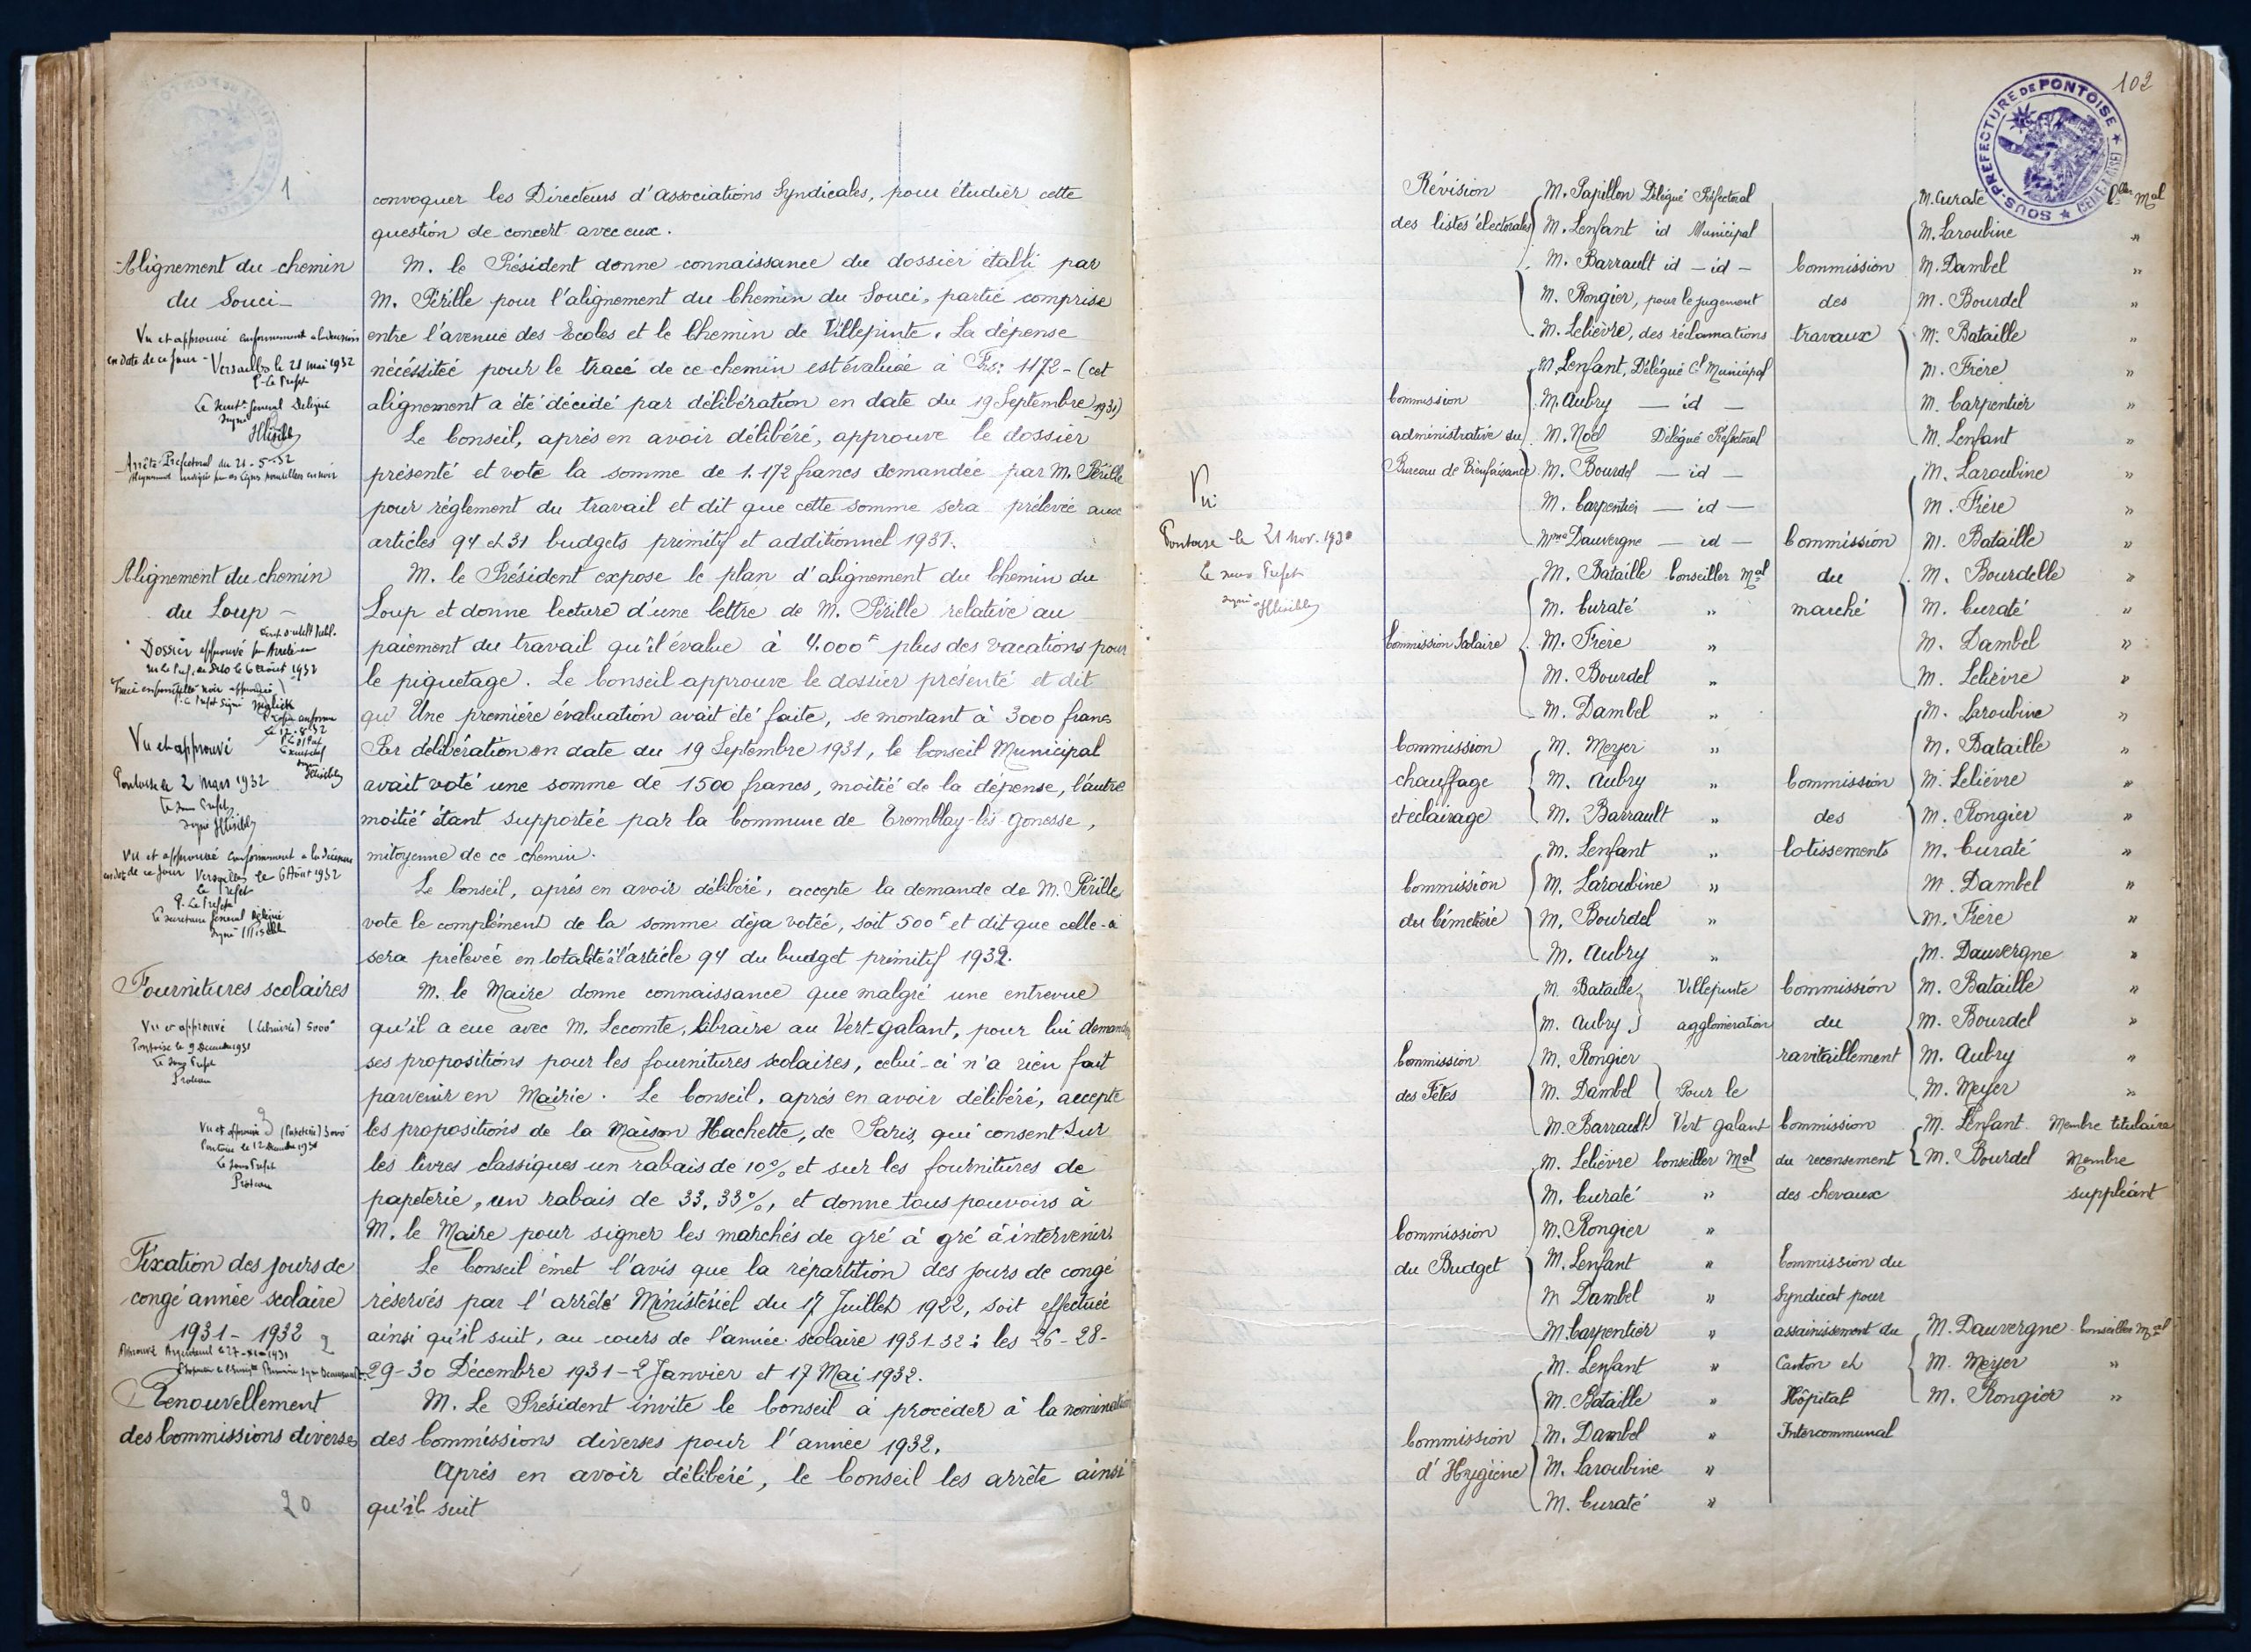 1
convoquer les Directeurs d'Associations Syndicales, pour étudier cette
question de concert avec eux.
Alignement du chemin
du Souci -
Vu et approuvé conformément à la décision
en date de ce jour - Versailles le 21 mai 1932
P. Le Préfet
Le Secrét. Général Délégué
signé Illisible
Arrêté Préfectoral du 21-5-32
M. le Président donne connaissance du dossier établi par
M. Pérille pour l'alignement du Chemin du Souci, partie comprise
entre l'avenue des Ecoles et le Chemin de Villepinte. La dépense
nécéssitée pour le tracé de ce chemin est évaluée à Frs: 1172 - (cet
alignement a été décidé par délibération en date du 19 Septembre 1931)
Le Conseil, après en avoir délibéré, approuve le dossier
présenté et vote la somme de 1.172 francs demandée par M. Pérille
pour règlement du travail et dit que cette somme sera prélevée aux
articles 94 et 31 budgets primitif et additionnel 1931.
Alignement du chemin
du Loup -
Dossier approuvé par Arrêté
le 6 Août 1932
Vu et approuvé
Pontoise le 2 Mars 1932
Le Sous Préfet
signé Illisible
Vu et approuvé conformément à la décision
en date de ce jour Versailles le 6 Août 1932
Le Préfet
P. Le Préfet
Le Secrétaire Général Délégué
signé Illisible
M. le Président expose le plan d'alignement du Chemin du
Loup et donne lecture d'une lettre de M. Pérille relative au
paiement du travail qu'il évalue à 4.000 f plus des vacations pour
le piquetage. Le Conseil approuve le dossier présenté et dit
qu'Une première évaluation avait été faite, se montant à 3000 francs
Par délibération en date du 19 Septembre 1931, le Conseil Municipal
avait voté une somme de 1500 francs, moitié de la dépense, l'autre
moitié étant supportée par la Commune de Tremblay-lès-Gonesse,
mitoyenne de ce chemin.
Le Conseil, après en avoir délibéré, accepte la demande de M. Pérille
vote le complément de la somme déja votée, soit 500 f et dit que celle-ci
sera prélevée en totalité à l'article 94 du budget primitif 1932.
Fournitures scolaires
Vu et approuvé (Librairie) 5000 f
Pontoise le 9 Décembre 1931
Le Sous Préfet
Proteau
Vu et approuvé (Papeterie) 3000 f
Pontoise le 12 Décembre 1931
Le Sous Préfet
Proteau
M. le Maire donne connaissance que malgré une entrevue
qu'il a eue avec M. Lecomte, libraire au Vert-galant, pour lui demander
ses propositions pour les fournitures scolaires, celui-ci n'a rien fait
parvenir en Mairie. Le Conseil, après en avoir délibéré, accepte
les propositions de la Maison Hachette, de Paris, qui consent sur
les livres classiques un rabais de 10% et sur les fournitures de
papeterie, un rabais de 33,33%, et donne tous pouvoirs à
M. le Maire pour signer les marchés de gré à gré à intervenir.
Fixation des jours de
congé année scolaire
1931 - 1932
2
Le Conseil émet l'avis que la répartition des jours de congé
réservés par l'arrêté Ministériel du 17 Juillet 1922, soit effectuée
ainsi qu'il suit, au cours de l'année scolaire 1931-32 : les 26-28-
29-30 Décembre 1931 - 2 Janvier et 17 Mai 1932.
Renouvellement
des Commissions diverses
M. Le Président invite le Conseil à procéder à la nomination
des Commissions diverses pour l'année 1932.
Après en avoir délibéré, le Conseil les arrête ainsi
qu'il suit
20
102
SOUS-PRÉFECTURE DE PONTOISE
SEINE ET OISE
Vu
Pontoise le 21 Nov. 1930
Le Sous Préfet
signé Illisible
Révision
des listes électorales
M. Papillon Délégué Préfectoral
M. Lenfant id Municipal
M. Barrault id - id -
M. Rongier, pour le jugement
M. Lelièvre, des réclamations
Commission
administrative du
Bureau de Bienfaisance
M. Lenfant, Délégué Cl Municipal
M. Aubry - id -
M. Noël Délégué Préfectoral
M. Bourdel - id -
M. Carpentier - id -
Mme Dauvergne - id -
Commission Scolaire
M. Bataille Conseiller Mal
M. Curaté "
M. Frère "
M. Bourdel "
M. Dambel "
Commission
chauffage
et éclairage
M. Meyer "
M. Aubry "
M. Barrault "
Commission
du Cimetière
M. Lenfant "
M. Laroubine "
M. Bourdel "
M. Aubry "
Commission
des Fêtes
M. Bataille Villepinte
M. Aubry agglomération
M. Rongier
M. Dambel Pour le
M. Barrault Vert galant
Commission
du Budget
M. Lelièvre Conseiller Mal
M. Curaté "
M. Rongier "
M. Lenfant "
M Dambel "
M. Carpentier "
Commission
d'Hygiène
M. Lenfant "
M. Bataille "
M. Dambel "
M. Laroubine "
M. Curaté "
Commission
des
travaux
M. Curaté Cller Mal
M. Laroubine "
M. Dambel "
M. Bourdel "
M. Bataille "
M. Frère "
M. Carpentier "
M. Lenfant "
Commission
du
marché
M. Laroubine "
M. Frère "
M. Bataille "
M. Bourdelle "
M. Curaté "
M. Dambel "
M. Lelièvre "
Commission
des
lotissements
M. Laroubine "
M. Bataille "
M. Lelièvre "
M. Rongier "
M. Curaté "
M. Dambel "
M. Frère "
Commission
du
ravitaillement
M. Dauvergne "
M. Bataille "
M. Bourdel "
M. Aubry "
M. Meyer "
Commission
du recensement
des chevaux
M. Lenfant Membre titulaire
M. Bourdel Membre
suppléant
Commission du
Syndicat pour
assainissement du
Canton et
Hôpital
Intercommunal
M. Dauvergne Conseiller Mal
M. Meyer "
M. Rongier "